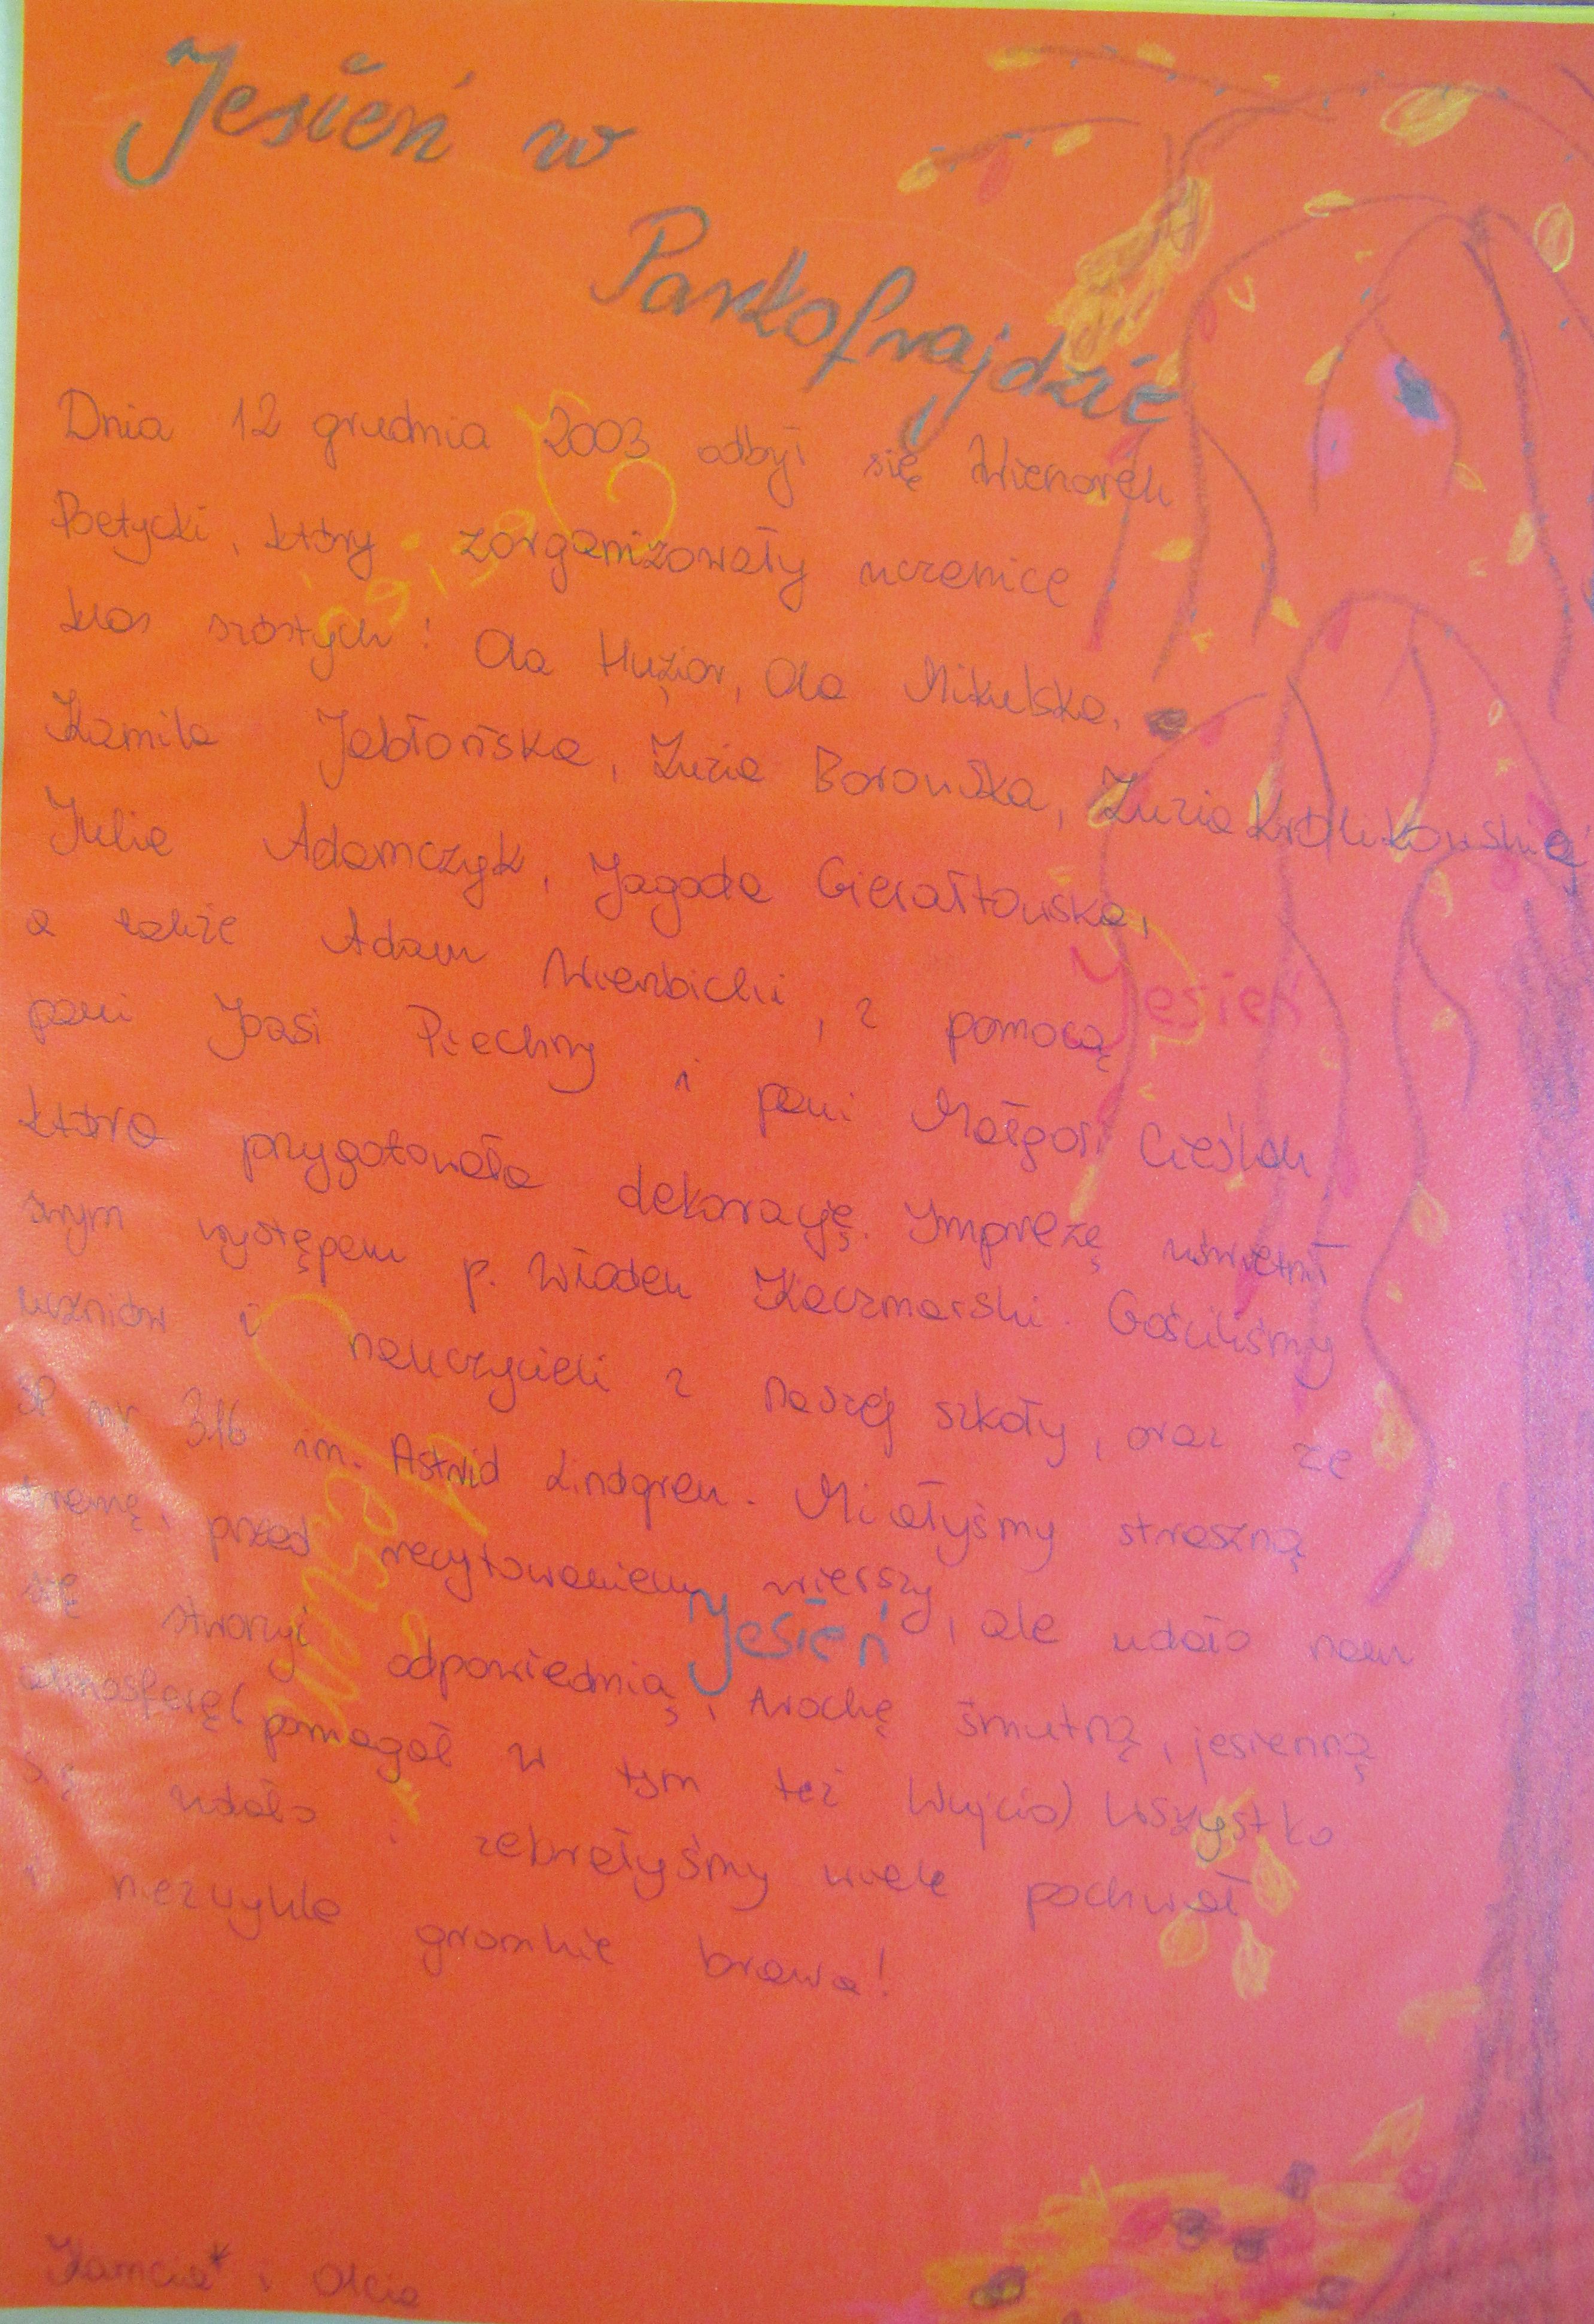 Jesień w
Parkofrajdzie
Dnia 12 grudnia 2003 odbył się Wieczorek
Poetycki, który zorganizowały uczenice
klas szóstych: Ola Huzior, Ola Mikulska,
Kamila Jabłońska, Zuzia Borowska, Zuzia Królikowska
Julia Adamczyk, Jagoda Gierałtowska,
a także Adam Wierzbicki, z pomocą
pani Joasi Piechny i pani Małgosi Cieślak
która przygotowała dekorację. Imprezę uświetnił
swym występem p. Władek Kaczmarski. Gościliśmy
uczniów i nauczycieli z naszej szkoły, oraz ze
SP nr 316 im. Astrid Lindgren. Miałyśmy straszną
tremę, przed recytowaniem wierszy, ale udało nam
się stworzyć odpowiednią, troche smutną, jesienną
atmosferę (pomagał w tym też Wujcio) Wszystko
się udało i zebrałyśmy wiele pochwał
i niezwykle gromkie brawa!
Jesień
Jesień
Kamcia* i Olcia